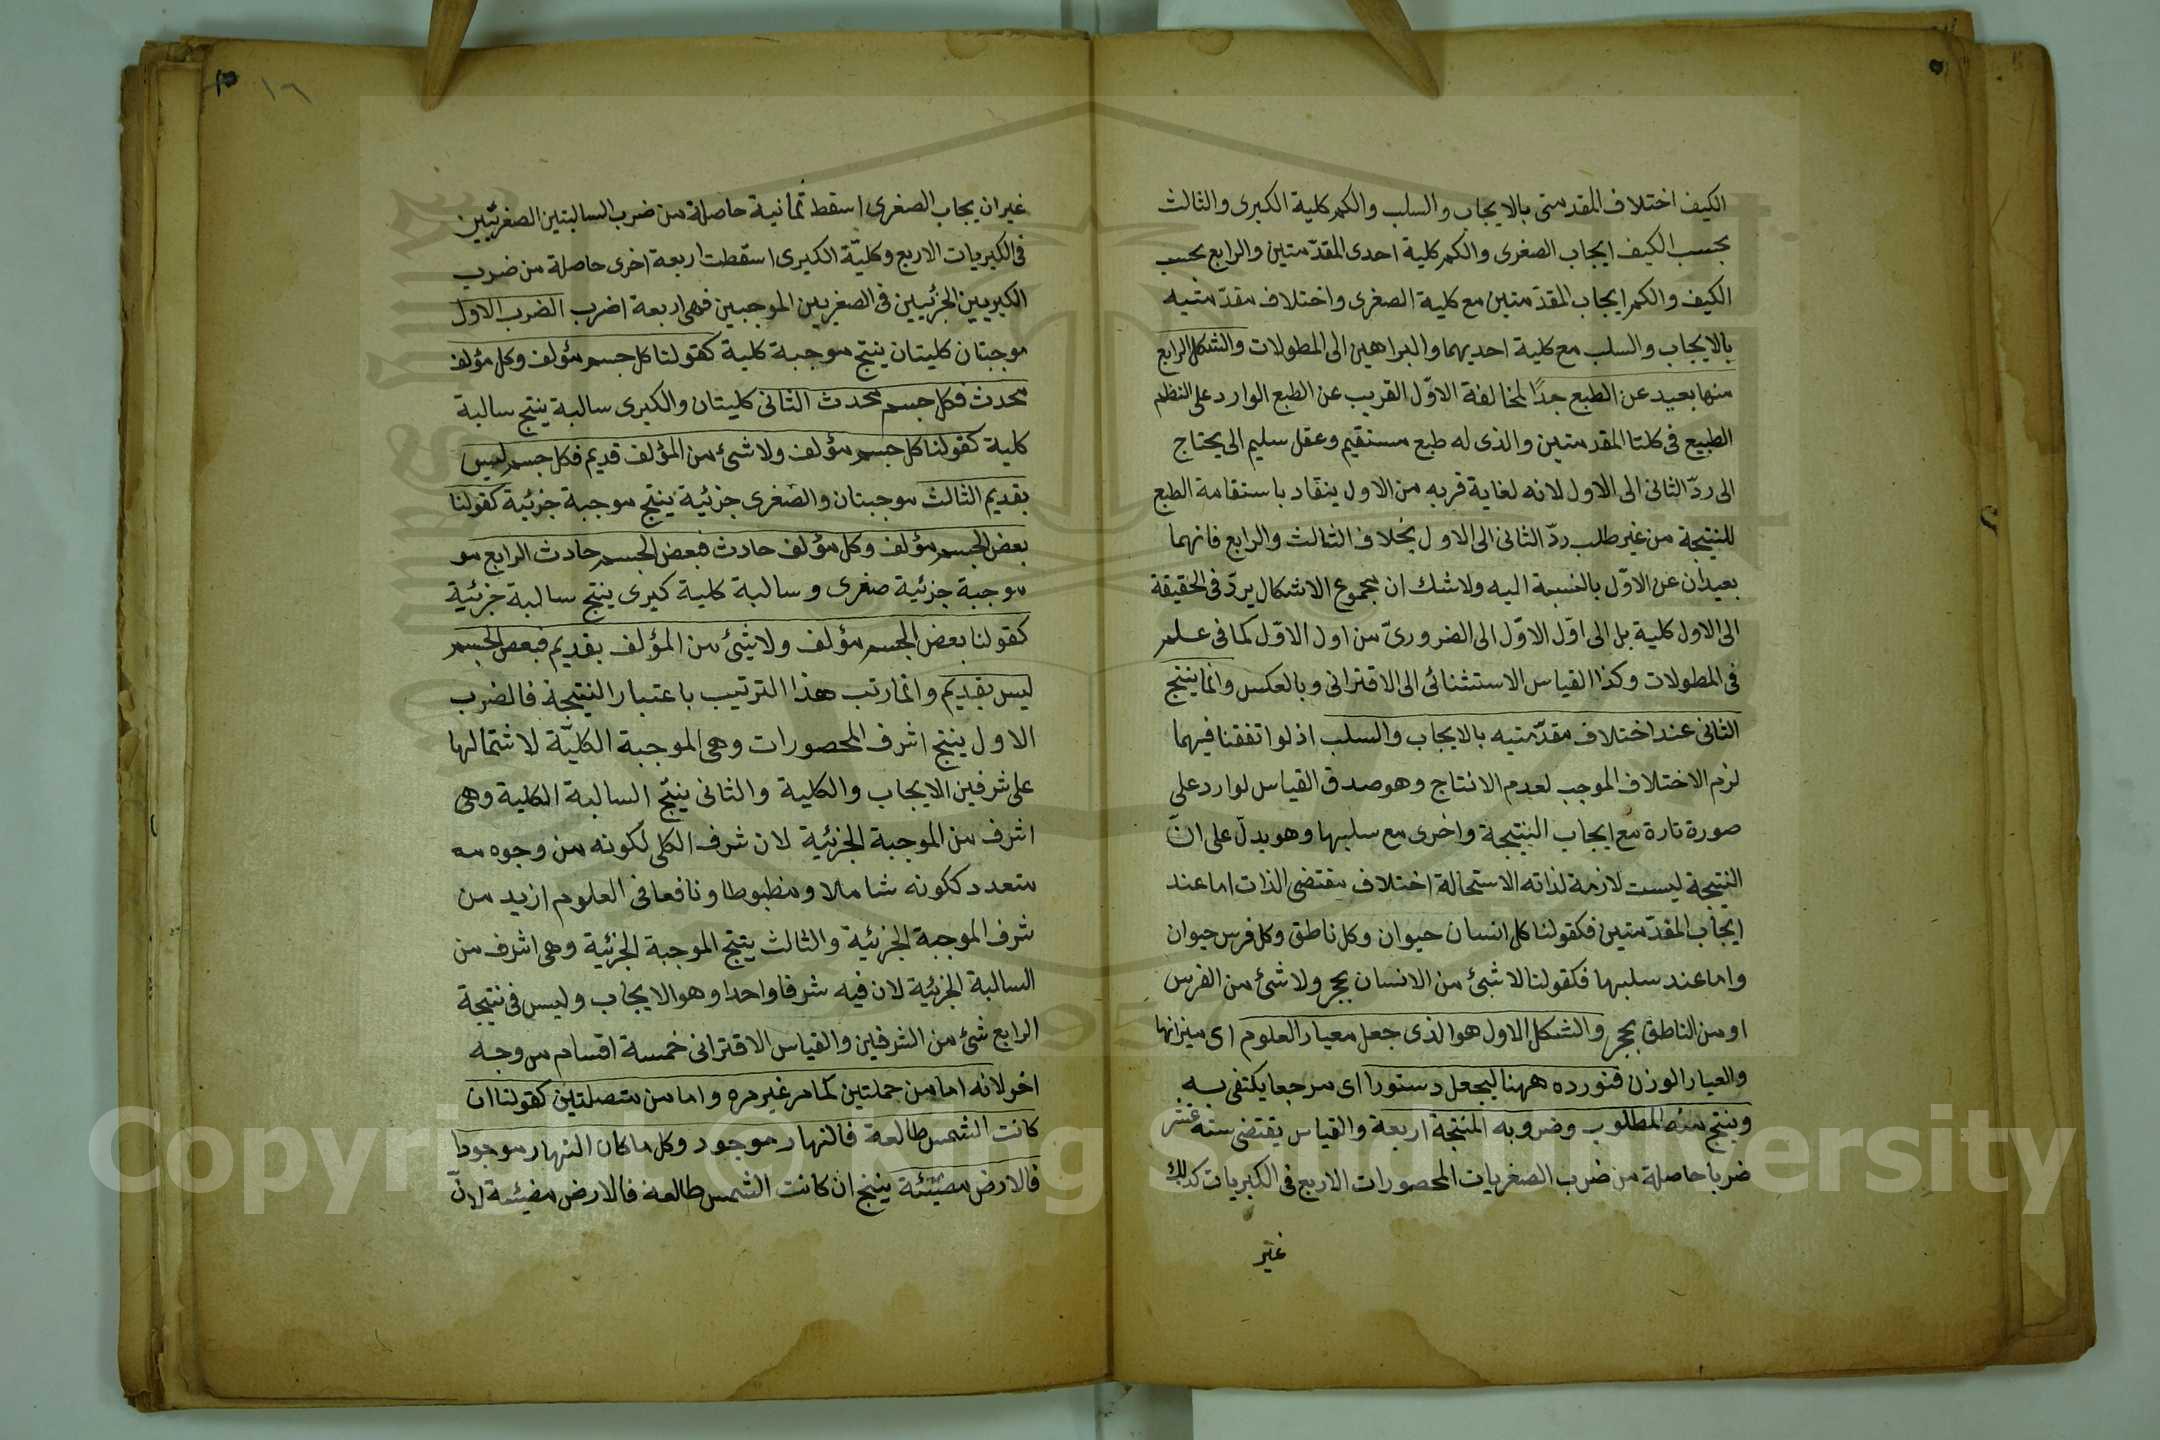 الكيف اختلاف المقدمتى بالايجاب والسلب والكم كلية الكبرى والثالث
بحسب الكيف ايجاب الصغرى والكم كلية احدى المقدّمتين والرابع بحسب
الكيف والكم ايجاب المقدّمتين مع كلية الصغرى واختلاف مقدّمتيه
بالايجاب والسلب مع كلية احديهما والبراهين الى المطولات والشكل الرابع
منها بعيد عن الطبع جدًا لمخالفة الاوّل القريب عن الطبع الوارد على النظم
الطبيع فى كلتا المقدمتين والذى له طبع مستقيم وعقل سليم الى يحتاج
الى ردّ الثانى الى الاول لانه لغاية قربه من الاول ينقاد باستقامة الطبع
للنتيجة من غير طلب ردّ الثانى الى الاول بخلاف الثالث والرابع فانهما
بعيدان عن الاوّل بالنسبة اليه ولا شك ان مجموع الاشكال يردّ فى الحقيقة
الى الاول كلية بل الى اوّل الاوّل الى الضرورىّ من اول الاوّل كما فى علم
فى المطولات وكذا القياس الاستثنائى الى الاقترانى وبالعكس وانما ينتج
الثانى عند اختلاف مقدّمتيه بالايجاب والسلب اذ لو اتفقنا فيهما
لزم الاختلاف الموجب لعدم الانتاج وهو صدق القياس لوارد على
صورة تارة مع ايجاب النتيجة واخرى مع سلبها وهو يدلّ على انّ
النتيجة ليست لازمة لذاته الاستحالة اختلاف مقتضى الذات اما عند
ايجاب المقدّمتين فكقولنا كل انسان حيوان وكل ناطق وكل فرس حيوان
واما عند سلبها فكقولنا لا شئ من الانسان بحجر ولا شئ من الفرس
او من الناطق بحجر والشكل الاول هو الذى جعل معيار العلوم اى ميزانها
والعيار الوزن فنورده ههنا ليجعل دستورا اى مرجعا يكتفى به
وينتج منه المطلوب وضروبه المنتجة اربعة والقياس يقتضى ستة عشر
ضربا حاصلة من ضرب الصغريات المحصورات الاربع فى الكبريات كذلك
غير
١٦
غير ان يجاب الصغرى اسقط ثمانية حاصلة من ضرب السالبتين الصغريّين
فى الكبريات الاربع وكليّة الكبرى اسقطت اربعة اخرى حاصلة من ضرب
الكبريين الجزئيين فى الصغريين الموجبين فهى اربعة اضرب الضرب الاول
موجبتان كليتان ينتج موجبة كلية كقولنا كل جسم مؤلف وكل مؤلف
محدث فكل جسم محدث الثانى كليتان والكبرى سالبة ينتج سالبة
كلية كقولنا كل جسم مؤلف ولا شئ من المؤلف قديم فكل جسم ليس
بقديم الثالث موجبتان والصغرى جزئية ينتج موجبة جزئية كقولنا
بعض الجسم مؤلف وكل مؤلف حادث فبعض الجسم حادث الرابع مو
موجبة جزئية صغرى وسالبة كلية كبرى ينتج سالبة جزئية
كقولنا بعض الجسم مؤلف ولا شئ من المؤلف بقديم فبعض الجسم
ليس بقديم وانما رتب هذا الترتيب باعتبار النتيجة فالضرب
الاول ينتج اشرف المحصورات وهى الموجبة الكليّة لاشتمالها
على شرفين الايجاب والكلية والثانى ينتج السالبة الكلية وهى
اشرف من الموجبة الجزئية لان شرف الكلى لكونه من وجوه مه
متعدد ككونه شاملا ومنظبوطا ونافعا فى العلوم ازيد من
شرف الموجبة الجزئية والثالث ينتج الموجبة الجزئية وهى اشرف من
السالبة الجزئية لان فيه شرفا واحدا وهو الايجاب وليس فى نتيجة
الرابع شئ من الشرفين والقياس الاقترانى خمسة اقسام من وجه
اخر لانه اما من حملتين كما مر غير مره واما من متصلتين كقولنا ان
كانت الشمس طالعة فالنهار موجود وكل ما كان النهار موجودا
فالارض مضيئة ينتج ان كانت الشمس طالعة فالارض مضيئة لانّ
Copyright © King Saud University